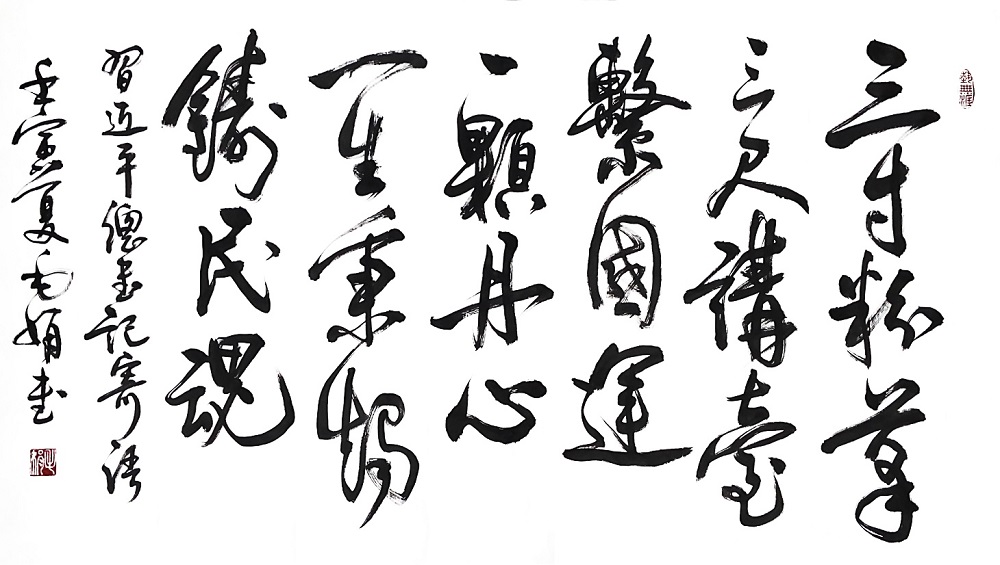 三寸粉筆
三尺講臺
繫國運
一顆丹心
一生秉燭
鑄民魂
習近平總書記寄語
壬寅夏毛娟書